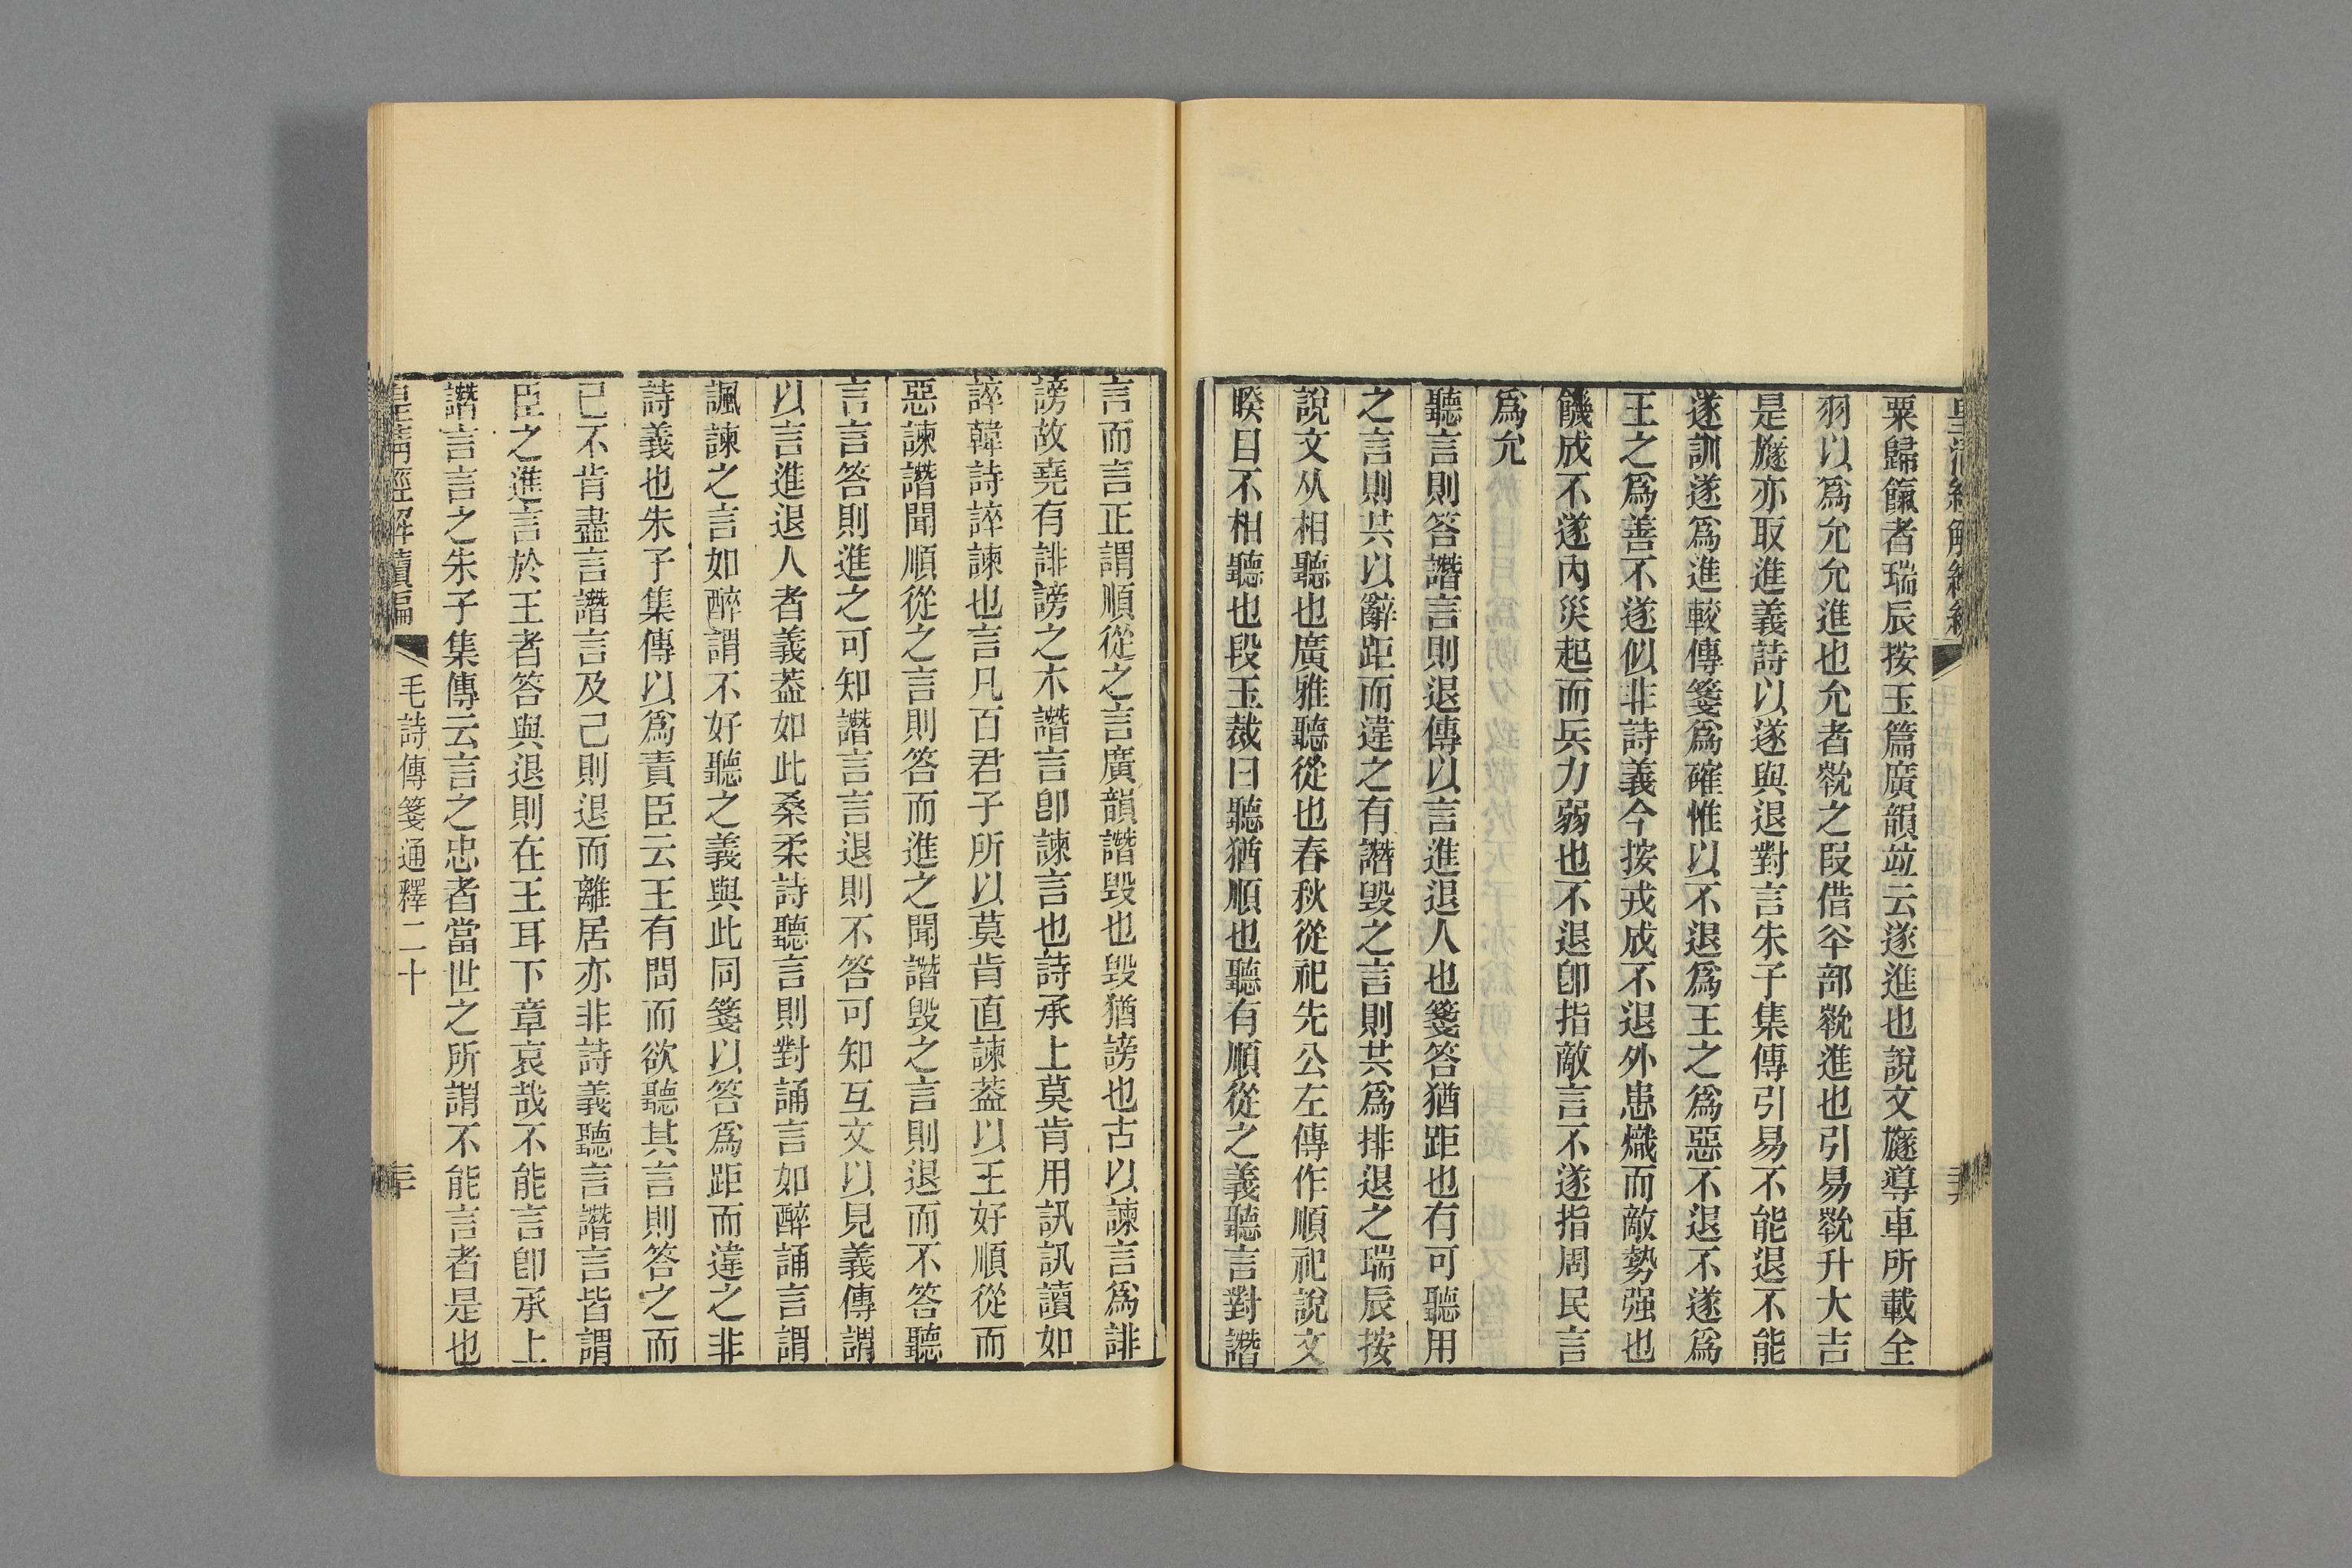 粟歸餼者瑞辰按玉篇廣韻竝云遂進也說文旞導車所載全
羽以爲允允進也允者㽙之叚借夲部㽙進也引易㽙升大吉
是旞亦取進義詩以遂與退對言朱子集傳引易不能退不能
遂訓遂爲進較傳箋爲確惟以不退爲王之爲惡不退不遂爲
王之爲善不遂似非詩義今按戎成不退外患熾而敵勢强也
饑成不遂內災起而兵力弱也不退卽指敵言不遂指周民言
爲允
聽言則答譖言則退傳以言進退人也箋答猶距也有可聽用
之言則共以辭距而違之有譖毀之言則共爲排退之瑞辰按
說文从相聽也廣雅聽從也春秋從祀先公左傳作順祀說文
睽目不相聽也段玉裁曰聽猶順也聽有順從之義聽言對譖
言而言正謂順從之言廣韻譖毀也毀猶謗也古以諫言爲誹
謗故堯有誹謗之木譖言卽諫言也詩承上莫肯用訊訊讀如
誶韓詩誶諫也言凡百君子所以莫肯直諫葢以王好順從而
惡諫譖聞順從之言則答而進之聞譖毀之言則退而不答聽
言言答則進之可知譖言言退則不答可知互文以見義傳謂
以言進退人者義葢如此桑柔詩聽言則對誦言如醉誦言謂
諷諫之言如醉謂不好聽之義與此同箋以答爲距而違之非
詩義也朱子集傳以爲責臣云王有問而欲聽其言則答之而
已不肯盡言譖言及己則退而離居亦非詩義聽言譖言皆謂
臣之進言於王者答與退則在王耳下章哀哉不能言卽承上
譖言言之朱子集傳云言之忠者當世之所謂不能言者是也
皇清經解續編
毛詩傳箋通釋二十